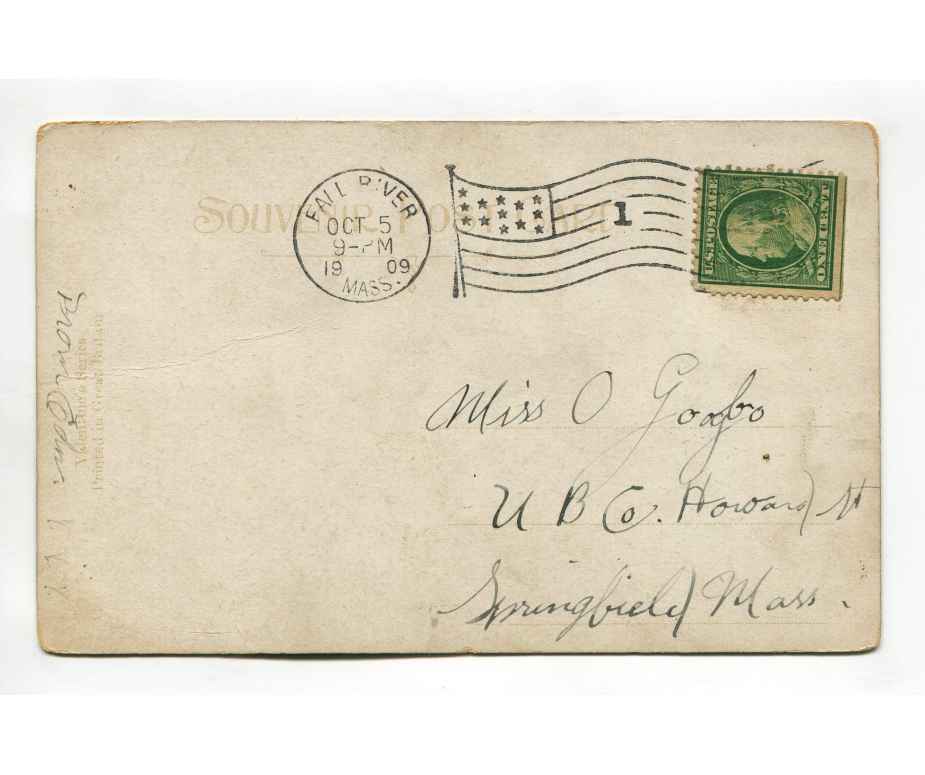 SOUVENIR POST CARD
FALL RIVER
OCT 5
9-PM
19 09
MASS.
1
U.S. POSTAGE
ONE CENT
Miss O
U B Co. Howard St
Springfield Mass.
Valentine's Series
Printed in Great Britain